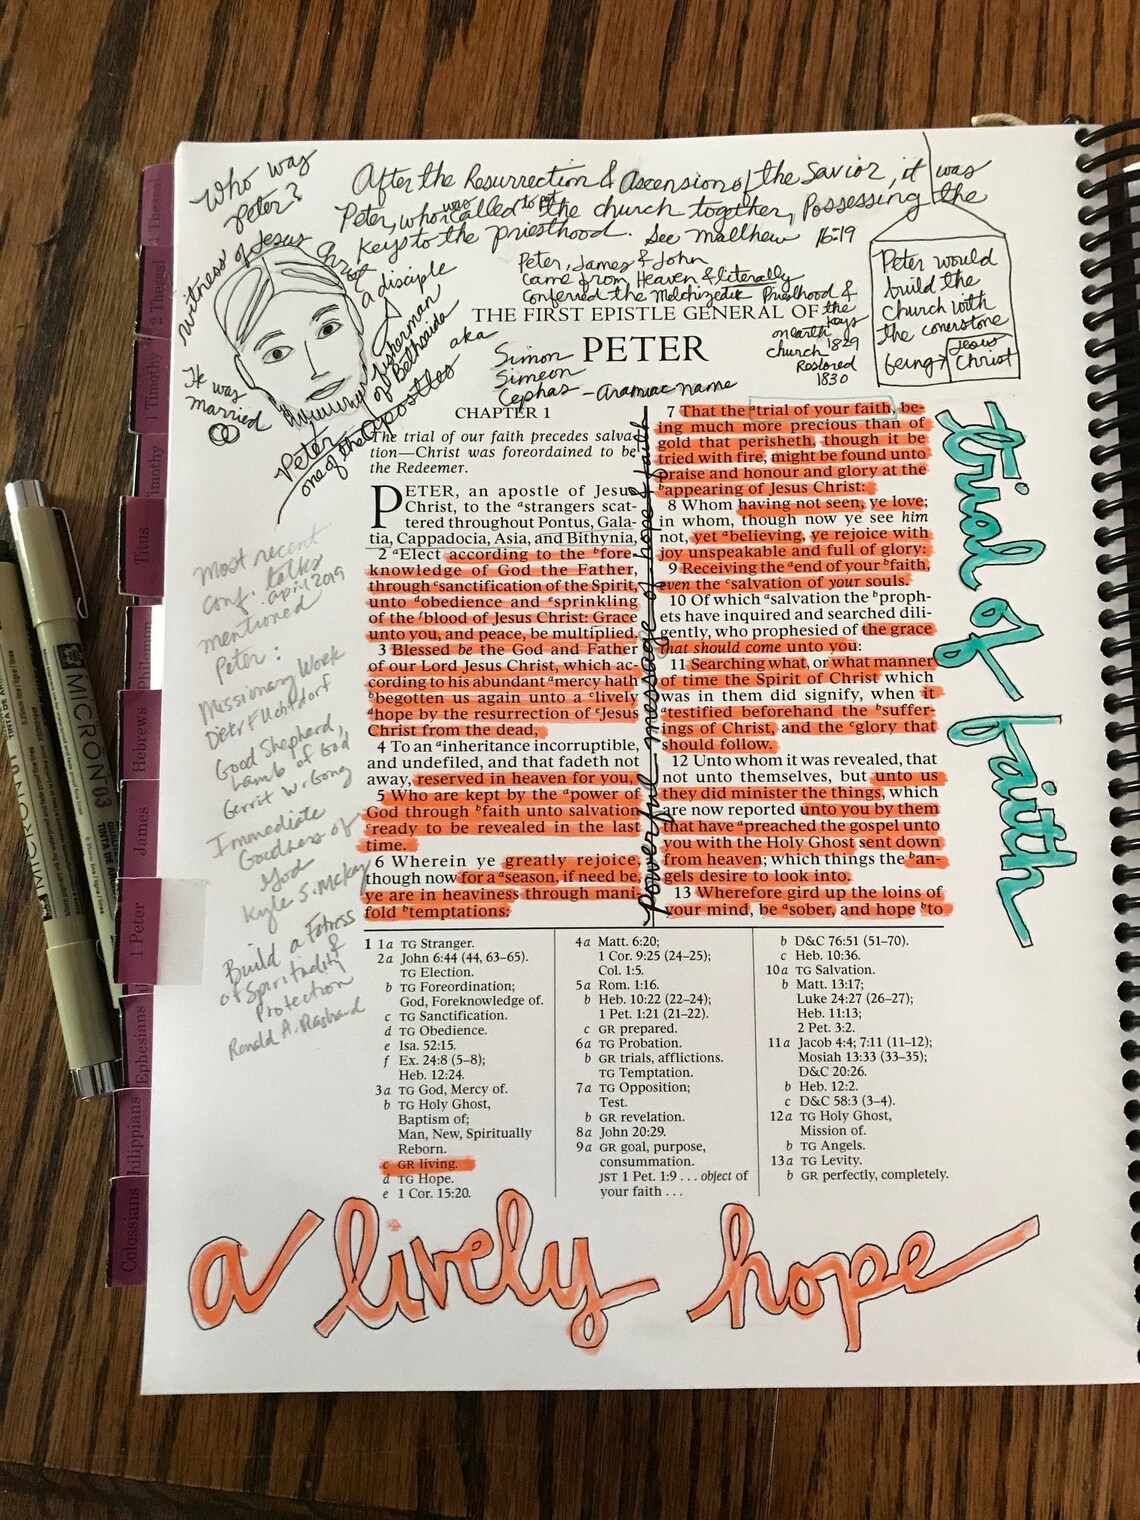 Who was
Peter?
witness of Jesus
Christ
a disciple
fisherman
of Bethsaida
It was
married
Peter
one of the Apostles
After the Resurrection & Ascension of the Savior, it was
Peter, who was called to get the church together, Possessing the
Keys to the priesthood. See Matthew 16:19
Peter, James & John
Came from Heaven & literally
Conferred the Melchizedek Priesthood &
the keys
on earth 1829
church Restored
1830
Peter would
build the
Church with
the cornerstone
being → Jesus
Christ
THE FIRST EPISTLE GENERAL OF
PETER
aka
Simon
Simeon
Cephas - Aramaic name
CHAPTER 1
The trial of our faith precedes salva-
tion—Christ was foreordained to be
the Redeemer.
PETER, an apostle of Jesus
Christ, to the ᵃstrangers scat-
tered throughout Pontus, Gala-
tia, Cappadocia, Asia, and Bithynia,
2 ᵃElect according to the ᵇfore-
knowledge of God the Father,
through ᶜsanctification of the Spirit,
unto ᵈobedience and ᵉsprinkling
of the ᶠblood of Jesus Christ: Grace
unto you, and peace, be multiplied.
3 Blessed be the God and Father
of our Lord Jesus Christ, which ac-
cording to his abundant ᵃmercy hath
ᵇbegotten us again unto a ᶜlively
ᵈhope by the resurrection of ᵉJesus
Christ from the dead,
4 To an ᵃinheritance incorruptible,
and undefiled, and that fadeth not
away, reserved in heaven for you,
5 Who are kept by the ᵃpower of
God through ᵇfaith unto salvation
ᶜready to be revealed in the last
time.
6 Wherein ye greatly rejoice,
though now for a ᵃseason, if need be,
ye are in heaviness through mani-
fold ᵇtemptations:
Powerful message of hope & faith
7 That the ᵃtrial of your faith, be-
ing much more precious than of
gold that perisheth, though it be
tried with fire, might be found unto
praise and honour and glory at the
ᵇappearing of Jesus Christ:
8 Whom having not seen, ye love;
in whom, though now ye see him
not, yet ᵃbelieving, ye rejoice with
joy unspeakable and full of glory:
9 Receiving the ᵃend of your ᵇfaith,
even the ᶜsalvation of your souls.
10 Of which ᵃsalvation the ᵇproph-
ets have inquired and searched dili-
gently, who prophesied of the grace
that should come unto you:
11 Searching what, or what manner
of time the Spirit of Christ which
was in them did signify, when it
ᵃtestified beforehand the ᵇsuffer-
ings of Christ, and the ᶜglory that
should follow.
12 Unto whom it was revealed, that
not unto themselves, but unto us
they did minister the things, which
are now reported unto you by them
that have ᵃpreached the gospel unto
you with the Holy Ghost sent down
from heaven; which things the ᵇan-
gels desire to look into.
13 Wherefore gird up the loins of
your mind, be ᵃsober, and hope ᵇto
trial of faith
Most recent
conf. talks
April 2019
mentioned
Peter:
Missionary Work
Dieter F Uchtdorf
Good Shepherd,
Lamb of God
Gerrit W. Gong
Immediate
Goodness of
God
Kyle S. McKay
Build a Fotress
of Spirituality &
Protection
Ronald A. Rasband
1 1a TG Stranger.
2a John 6:44 (44, 63–65).
TG Election.
b TG Foreordination;
God, Foreknowledge of.
c TG Sanctification.
d TG Obedience.
e Isa. 52:15.
f Ex. 24:8 (5–8);
Heb. 12:24.
3a TG God, Mercy of.
b TG Holy Ghost,
Baptism of;
Man, New, Spiritually
Reborn.
c GR living.
d TG Hope.
e 1 Cor. 15:20.
4a Matt. 6:20;
1 Cor. 9:25 (24–25);
Col. 1:5.
5a Rom. 1:16.
b Heb. 10:22 (22–24);
1 Pet. 1:21 (21–22).
c GR prepared.
6a TG Probation.
b GR trials, afflictions.
TG Temptation.
7a TG Opposition;
Test.
b GR revelation.
8a John 20:29.
9a GR goal, purpose,
consummation.
JST 1 Pet. 1:9 . . . object of
your faith . . .
b D&C 76:51 (51–70).
c Heb. 10:36.
10a TG Salvation.
b Matt. 13:17;
Luke 24:27 (26–27);
Heb. 11:13;
2 Pet. 3:2.
11a Jacob 4:4; 7:11 (11–12);
Mosiah 13:33 (33–35);
D&C 20:26.
b Heb. 12:2.
c D&C 58:3 (3–4).
12a TG Holy Ghost,
Mission of.
b TG Angels.
13a TG Levity.
b GR perfectly, completely.
a lively hope
1 Thessal
2 Thessal
1 Timothy
Timothy
Titus
Philemon
Hebrews
James
1 Peter
Ephesians
Philippians
Colossians
MICRON 03
MICRON 01